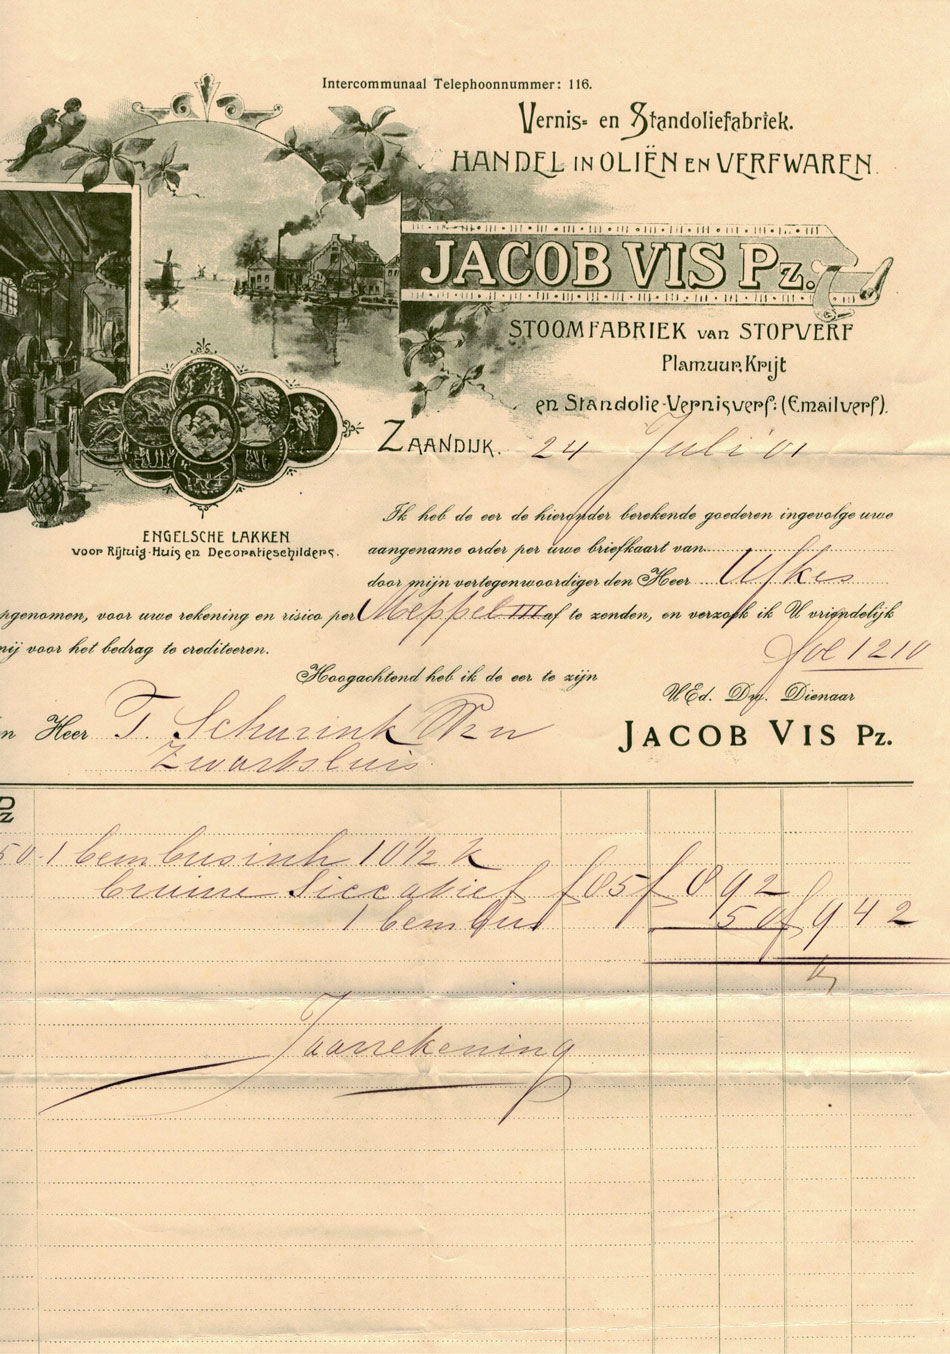 Intercommunaal Telephoonnummer: 116.
Vernis- en Standoliefabriek.
HANDEL IN OLIËN EN VERFWAREN.
JACOB VIS Pz.
STOOMFABRIEK van STOPVERF
Plamuur, Krijt
en Standolie-Vernisverf: (Emailverf).
ZAANDIJK. 24 Juli 01
ENGELSCHE LAKKEN
voor Rijtuig-Huis en Decoratieschilders.
Ik heb de eer de hieronder berekende goederen ingevolge uwe
aangename order per uwe briefkaart van
door mijn vertegenwoordiger den Heer Ufkes
pgenomen, voor uwe rekening en risico per Meppel III af te zenden, en verzoek ik U vriendelijk
nij voor het bedrag te crediteeren.
fol 1210
Hoogachtend heb ik de eer te zijn
UEd. Dw. Dienaar
JACOB VIS Pz.
n Heer T. Schurink Wzn
Zwartsluis
50 1 bembus inh 10½ k
bruine Siccatief f 85 f 8 92
1 bembus 50 f 9 42
Jaarrekening